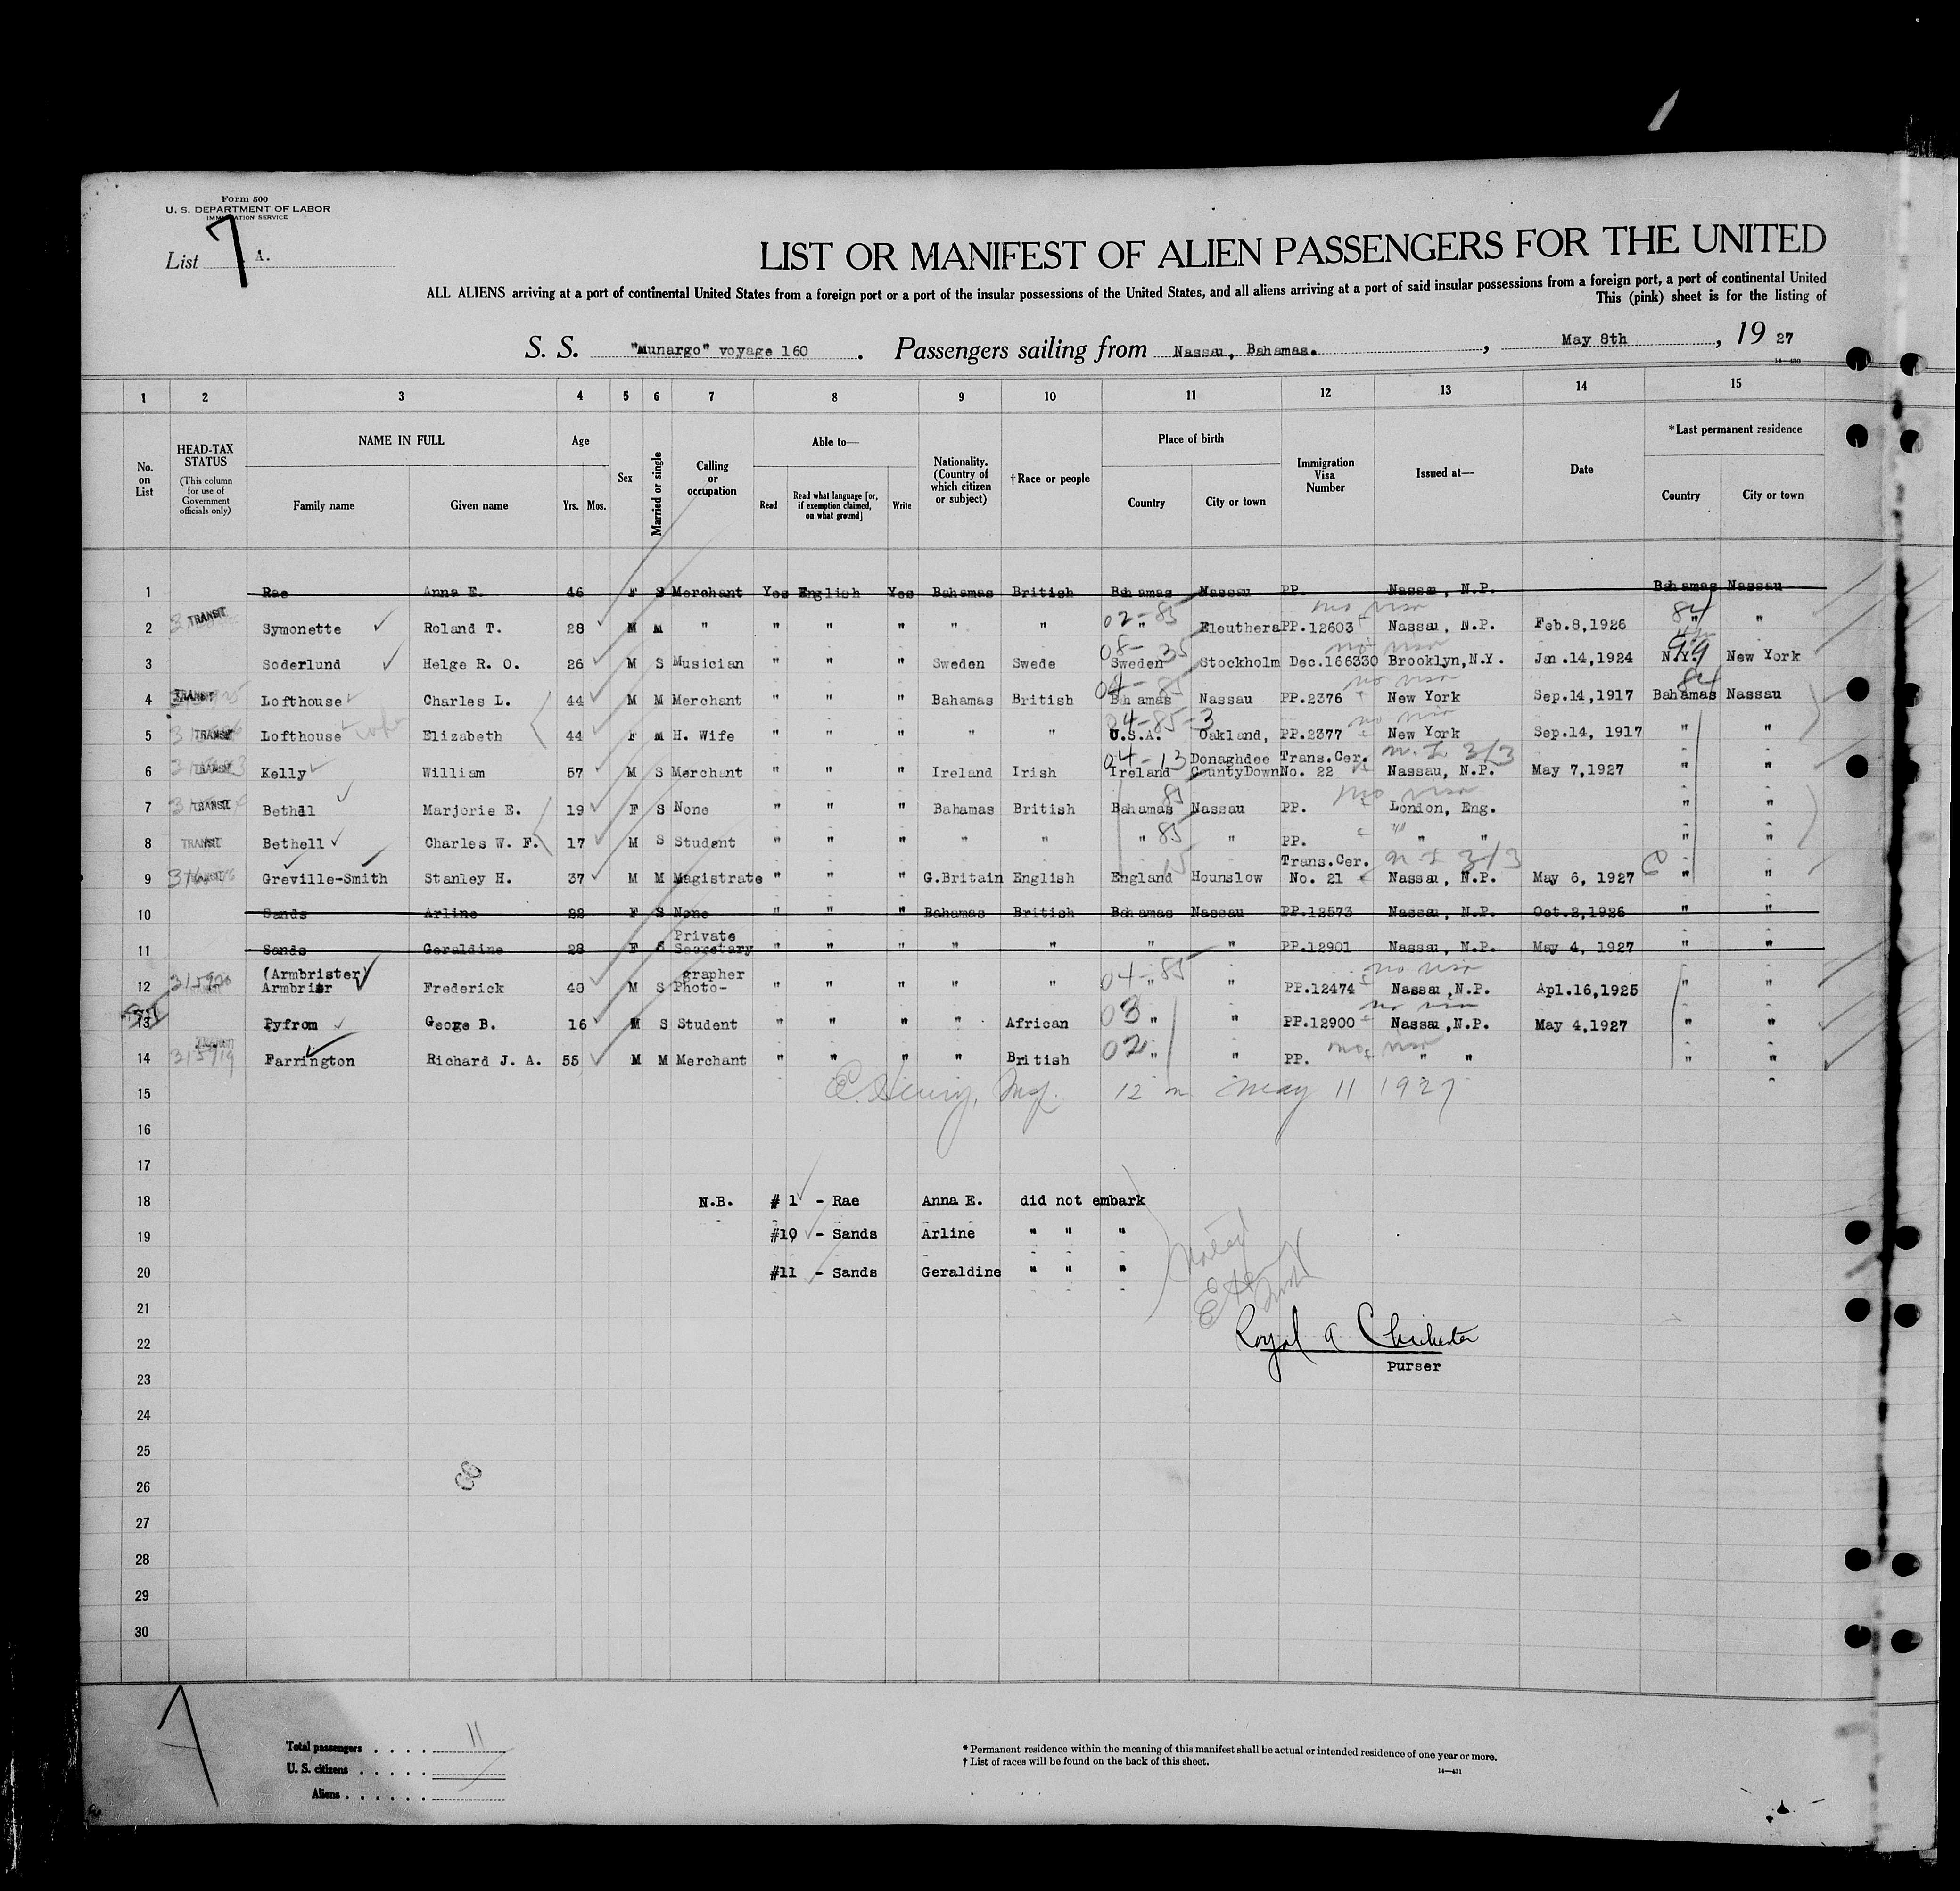 Form 500
U. S. DEPARTMENT OF LABOR
IMMIGRATION SERVICE
List 7 A.
LIST OR MANIFEST OF ALIEN PASSENGERS FOR THE UNITED
ALL ALIENS arriving at a port of continental United States from a foreign port or a port of the insular possessions of the United States, and all aliens arriving at a port of said insular possessions from a foreign port, a port of continental United
This (pink) sheet is for the listing of
S. S. "Munargo" voyage 160 . Passengers sailing from Nassau, Bahamas. , May 8th , 19 27
14—430
1 2 3 4 5 6 7 8 9 10 11 12 13 14 15
No. on List
HEAD-TAX STATUS (This column for use of Government officials only)
NAME IN FULL
Family name Given name
Age
Yrs. Mos.
Sex
Married or single
Calling or occupation
Able to—
Read
Read what language [or, if exemption claimed, on what ground]
Write
Nationality. (Country of which citizen or subject)
†Race or people
Place of birth
Country City or town
Immigration Visa Number
Issued at—
Date
*Last permanent residence
Country City or town
1 Rae Anna E. 46 F S Merchant Yes English Yes Bahamas British Bahamas Nassau PP. Nassau, N.P. Bahamas Nassau
02-85 no visa 84
2 TRANSIT Symonette Roland T. 28 M M " " " " " " " Eleuthera PP.12603 Nassau, N.P. Feb.8,1926 " "
08-35 no visa 99
3 Soderlund Helge R. O. 26 M S Musician " " " Sweden Swede Sweden Stockholm Dec.166330 Brooklyn,N.Y. Jan.14,1924 N.Y. New York
04-85 no visa 84
4 TRANSIT Lofthouse Charles L. 44 M M Merchant " " " Bahamas British Bahamas Nassau PP.2376 New York Sep.14,1917 Bahamas Nassau
04-85-3 no visa
5 TRANSIT Lofthouse Elizabeth 44 F M H. Wife " " " " " U.S.A. Oakland, PP.2377 New York Sep.14, 1917 " "
04-13 Donaghdee Trans.Cer. 3/3
6 TRANSIT Kelly William 57 M S Merchant " " " Ireland Irish Ireland CountyDown No. 22 Nassau, N.P. May 7,1927 " "
85 no visa
7 TRANSIT Bethell Marjorie E. 19 F S None " " " Bahamas British Bahamas Nassau PP. London, Eng. " "
8 TRANSIT Bethell Charles W. F. 17 M S Student " " " " " " 85 " PP. " " " "
15 Trans.Cer. 3/3
9 Greville-Smith Stanley H. 37 M M Magistrate " " " G.Britain English England Hounslow No. 21 Nassau, N.P. May 6, 1927 " "
10 Sands Arline 22 F S None " " " Bahamas British Bahamas Nassau PP.12573 Nassau, N.P. Oct.2,1926 " "
Private
11 Sands Geraldine 28 F S Secretary " " " " " " " PP.12901 Nassau, N.P. May 4, 1927 " "
(Armbrister) grapher 04-85 no visa
12 Armbrisr Frederick 40 M S Photo- " " " " " " " PP.12474 Nassau,N.P. Apl.16,1925 " "
03 no visa
13 Pyfrom Geoge B. 16 M S Student " " " " African " " PP.12900 Nassau,N.P. May 4,1927 " "
02 no visa
14 TRANSIT Farrington Richard J. A. 55 M M Merchant " " " " British " " PP. " " " "
15 12 m May 11 1927
16
17
18 N.B. # 1 - Rae Anna E. did not embark
19 #10 - Sands Arline " " "
20 #11 - Sands Geraldine " " "
Noted
21
22 Royal A Chichester
Purser
23
24
25
26
27
28
29
30
Total passengers . . . . 11
U. S. citizens . . . . .
Aliens . . . . . .
* Permanent residence within the meaning of this manifest shall be actual or intended residence of one year or more.
† List of races will be found on the back of this sheet.
14—431